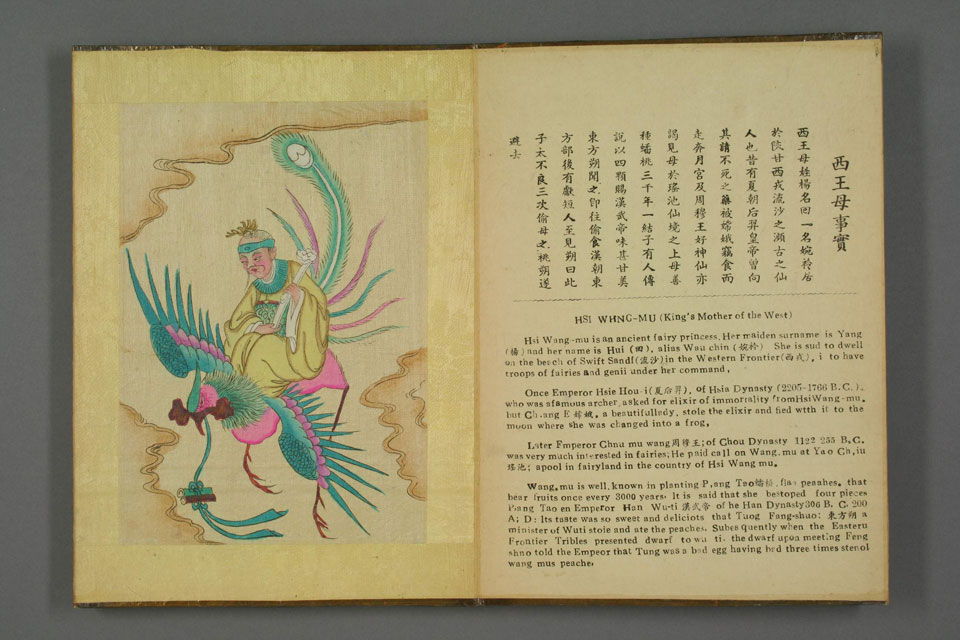 西王母事實
西王母姓楊名回一名婉衿居
於陝甘西戎流沙之瀕古之仙
人也昔有夏朝后羿皇帝曾向
其請不死之藥被嫦娥竊食而
走奔月宮及周穆王好神仙亦
謁見母於瑤池仙境之上母善
種蟠桃三千年一結子有人傳
說以四顆賜漢武帝味甚甘美
東方朔聞之卽往偷食漢朝東
方部後有獻短人至見朔曰此
子太不良三次偷母之桃朔遂
避去
HSI WHNG-MU (King's Mother of the West)
Hsi Wang-mu is an ancient fairy princess. Her maiden surname is Yang
(楊) and her name is Hui (回), alias Wau chin (婉衿) She is sud to dwell
on the beach of Swift Sandl(流沙)in the Western Frontier(西戎), i to have
troops of fairies and genii under her command,
Once Emperor Hsie Hou-i(夏后羿), of Hsia Dynasty (2205-1766 B.C.),
who was afamous archer asked for elixir of immortality fromHsiWang-mu.
but Ch,ang E 嫦娥, a beautifullady, stole the elixir and fied wtth it to the
moon where she was changed into a frog,
Later Emperor Chnu mu wang周穆王; of Chou Dynasty 1122 255 B.C.
was very much interested in fairies; He paid call on Wang-mu at Yao Ch,iu
瑤池; apool in fairyland in the country of Hsi Wang mu.
Wang-mu is well known in planting P,ang Tao蟠桃, flan peaahes, that
bear fruits once every 3000 years. It is said that she bestoped four pieces
Pang Tao en Emperor Han Wu-ti 漢武帝 of he Han Dynasty 206 B. C. 200
A; D: Its taste was so sweet and deliciots that Tuog Fang-shuo: 東方朔 a
minister of Wuti stole and ate the peaches. Subse quently when the Easteru
Frontier Tribles presented dwarf to wu ti. the dwarf upon meeting Feng
shno told the Empeor that Tung was a bad egg having bad three times stenol
wang mus peache,